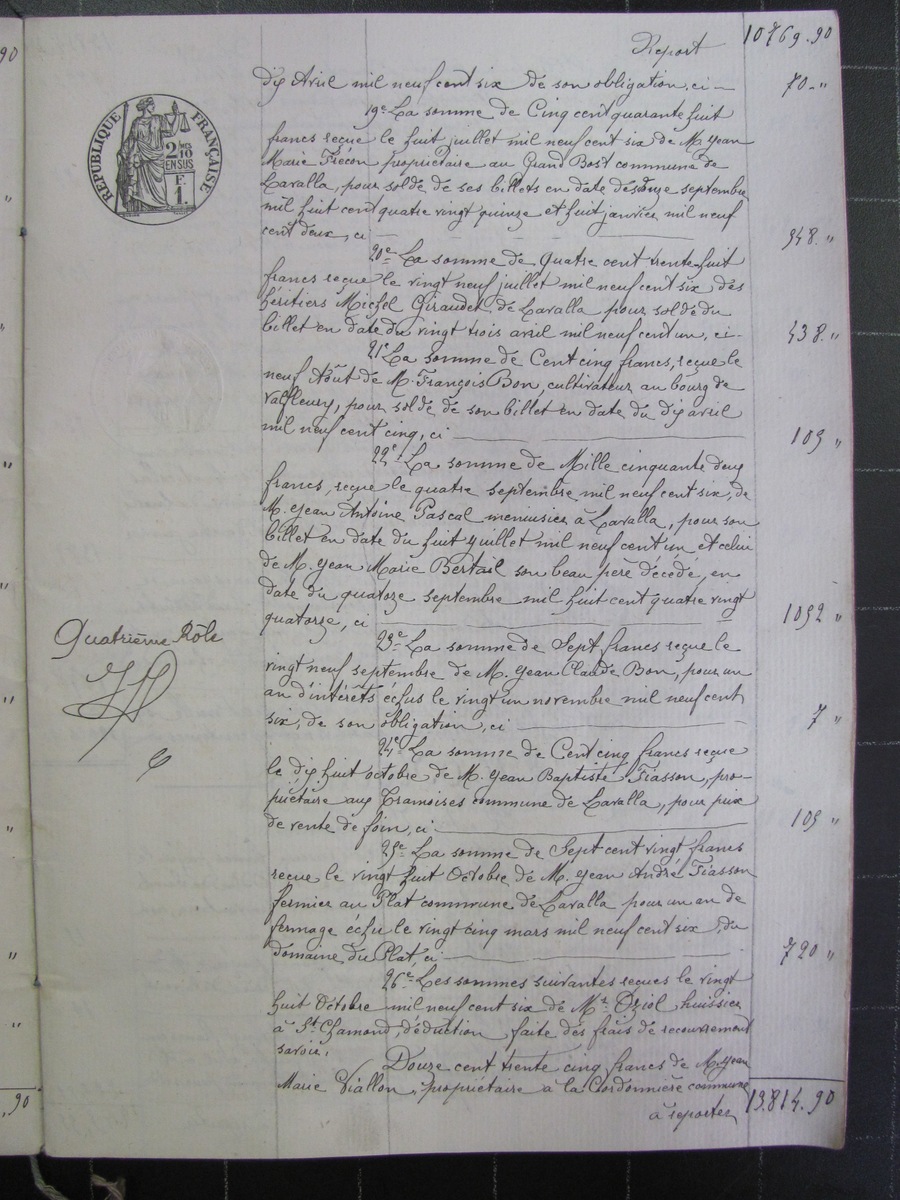 Report 10769.90
dix Avril mil neuf cent six de son obligation, ci — 70 "
19e La somme de Cinq cent quarante huit
francs reçue le huit juillet mil neuf cent six de M. Jean
Marie propriétaire au Grand Bost commune de
Lavalla, pour solde de ses billets en date des onze septembre
mil huit cent quatre vingt quinze et huit janvier mil neuf
cent deux, ci — 548. "
20e La somme de Quatre cent trente-huit
francs reçue le vingt neuf juillet mil neuf cent six, des
héritiers Michel Giraudet, de Lavalla pour solde du
billet en date du vingt trois avril mil neuf cent un, ci - 438. "
21e La somme de Cent cinq francs, reçue le
neuf Août de M. François Bon, cultivateur au bourg de
Valfleury, pour solde de son billet en date du dix avril
mil neuf cent cinq, ci — 105 "
22e La somme de Mille cinquante deux
francs, reçue le quatre septembre mil neuf cent six, de
M. Jean Antoine Pascal menuisier à Lavalla, pour son
billet en date du huit Juillet mil neuf cent un et celui
de M. Jean Marie Bertail son beau père décédé, en
date du quatorze septembre mil huit cent quatre vingt
quatorze, ci — 1052 "
23e La somme de Sept francs reçue le
vingt neuf septembre de M. Jean Claude Bon, pour un
an d'intérêts échus le vingt un novembre mil neuf cent
six, de son obligation, ci — 7 "
24e La somme de Cent cinq francs reçue
le dix huit octobre de M. Jean Baptiste Tiasson, pro-
priétaire aux Tramoises commune de Lavalla, pour prix
de vente de foin, ci — 105 "
25e La somme de Sept cent vingt francs
reçue le vingt huit Octobre de M. Jean André Tiasson
fermier au Plat commune de Lavalla pour un an de
fermage échu le vingt cinq mars mil neuf cent six, du
domaine du Plat, ci — 720 "
26e Les sommes suivantes reçues le vingt
huit Octobre mil neuf cent six de Me Oziol huissier
à St Chamond, déduction faite des frais de recouvrement
savoir:
Douze cent trente cinq francs de M. Jean
Marie Viallon, propriétaire à la Cordonnière commune
à reporter 13814.90
RÉPUBLIQUE FRANÇAISE
2/10
EN SUS
F.
1.
Quatrième Rôle
90
, 90